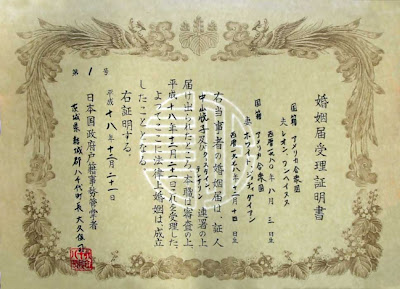 婚姻届受理証明書
国籍 アメリカ合衆国
夫 レオン、
西暦一九八〇年 八月 三日生
国籍 アメリカ合衆国
妻
西暦一九七八年十二月十日生
右当事者の婚姻届は、証人
中山悦子及び 連署の上
届け出られたところ、本職は審査の上
平成十八年十二月二十一日これを受理した。
よってここに法律上婚姻は、成立
したこととなる。
右証明する。
第 1 号
平成 十八年十二月二十一日
日本国政府戸籍事務管掌者
茨城県結城郡八千代町長 大久保